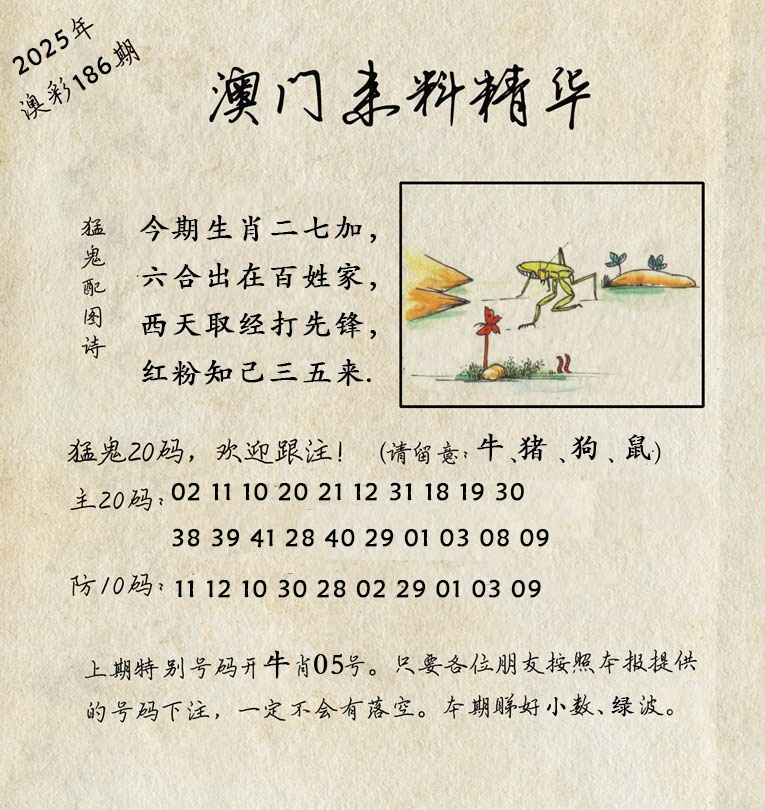 2025年
澳彩186期
澳门来料精华
猛鬼配图诗
今期生肖二七加，
六合出在百姓家，
西天取经打先锋，
红粉知己三五来.
猛鬼20码，欢迎跟注！（请留意：牛、猪、狗、鼠）
主20码：02 11 10 20 21 12 31 18 19 30
38 39 41 28 40 29 01 03 08 09
防10码：11 12 10 30 28 02 29 01 03 09
上期特别号码开牛肖05号。只要各位朋友按照本报提供
的号码下注，一定不会有落空。本期睇好小数、绿波。